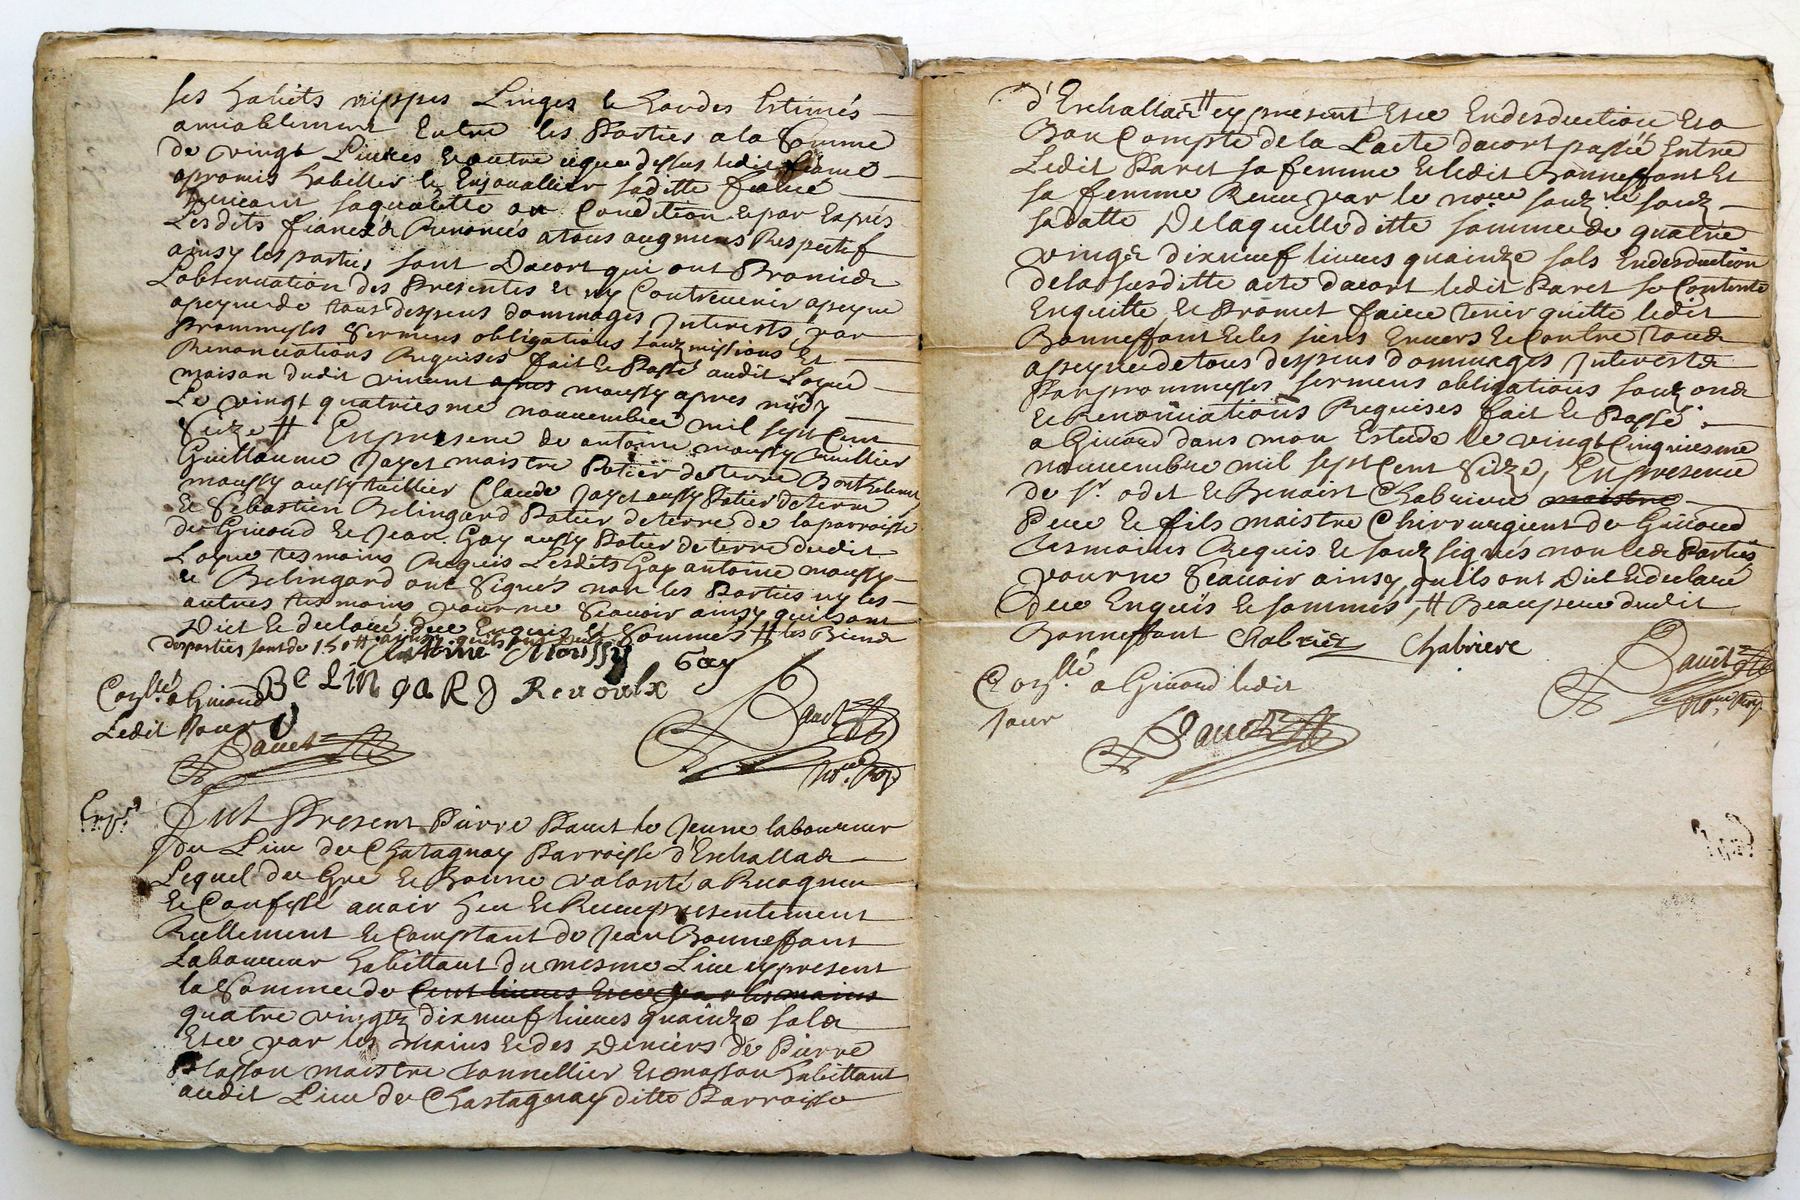 ses habits nippes Linges & hardes Estimés
amiablement Entre les Parties a la Somme
de vingt Livres & outre ce que dessus ledit fiancé
a promis habiller & Enjoualler saditte fiancée
suivant sa qualité ou Condition & par Exprés
Lesdits fiancés Renoncés a tous augmens Respectif
ainsy les parties sont Dacort qui ont Promis
Lobservation des Presentes & ny Contrevenir a peyne
a peyne de tous despens dommages Interests par
Prommesses Sermens obligations souzmissions Et
Renonciations Requises fait & Passé audit Loyre
maison dudit vincent apres moussy apres midy
Le vingt quatriesme nouvembre mil sept Cent
Seize # En presence de antoine moussy tuillier
Guillaume Jayet maistre Potier de terre Barthelemy
moussy aussy tuillier Claude Jayet aussy Potier de terre
& Sebastien Belingard Potier de terre de la parroisse
de Givord & Jean Gay aussy Potier de terre dudit
Loyre tesmoins Requis Lesdits Gay antoine moussy
& Belingard ont Signés non les Parties ny les
autres tesmoins pour ne Scavoir ainsy quils ont
Dict & declaré deue Enquis & Sommés # les Biens
des parties sont de 150 # ainsy quils ont
Antoine Moussy Gay
BeLINGARD Revoulx
Con.llé a Givord
Ledit Jour
Pauet
Pauet
No.re Roy.
Exp.é
Fut Present Pierre Pauet le Jeune laboureur
du Lieu de Chatagnay Parroisse d'Eschallas
Lequel de Gré & Bonne volonté a Recogneu
& Confessé avoir heu & Receu presentement
Reellement & Comptant de Jean Bonneffant
Laboureur habittant du mesme Lieu cy present
la Somme de Cent livres Et ce par les mains
quatre vingtz dixneuf livres quainze sols
Et ce par les mains & des Deniers de Pierre
Plasson maistre tonnellier Et masson habittant
audit Lieu de Chastagnay ditte Parroisse
d'Eschallas # cy present Et ce En desduction Et a
Bon Compte de la Lacte dacort passée Entre
Ledit Pavet sa femme & ledit Bonneffant Et
sa femme Receu par le no.re souz.né souz
sa datte De laquelle ditte somme de quatre
vingt dixneuf livres quainze sols En desduction
de la susditte acte dacort ledit Pavet se Contente
En quitte & Promet faire tenir quitte ledit
Bonneffant & les siens Envers & Contre tous
a peyne de tous despens dommages Interests
Par prommesses sermens obligations souz
& Renonciations Requises fait & Passé
a Givord dans mon Estude le vingt Cinquiesme
nouvembre mil sept Cent Seize, En presence
de S.r odet & Benoist Chabriere maistre
Pere & fils maistre Chirurgiens de Givord
Tesmoins Requis & souz signés non lesd Parties
pour ne Scavoir ainsy quils ont Dict & declaré
deue Enquis & sommés, # Beaupere dudit
Bonneffant Chabrier Chabriere
Con.llé a Givord ledit
Jour
Pauet
Pauet
No.re Roy.